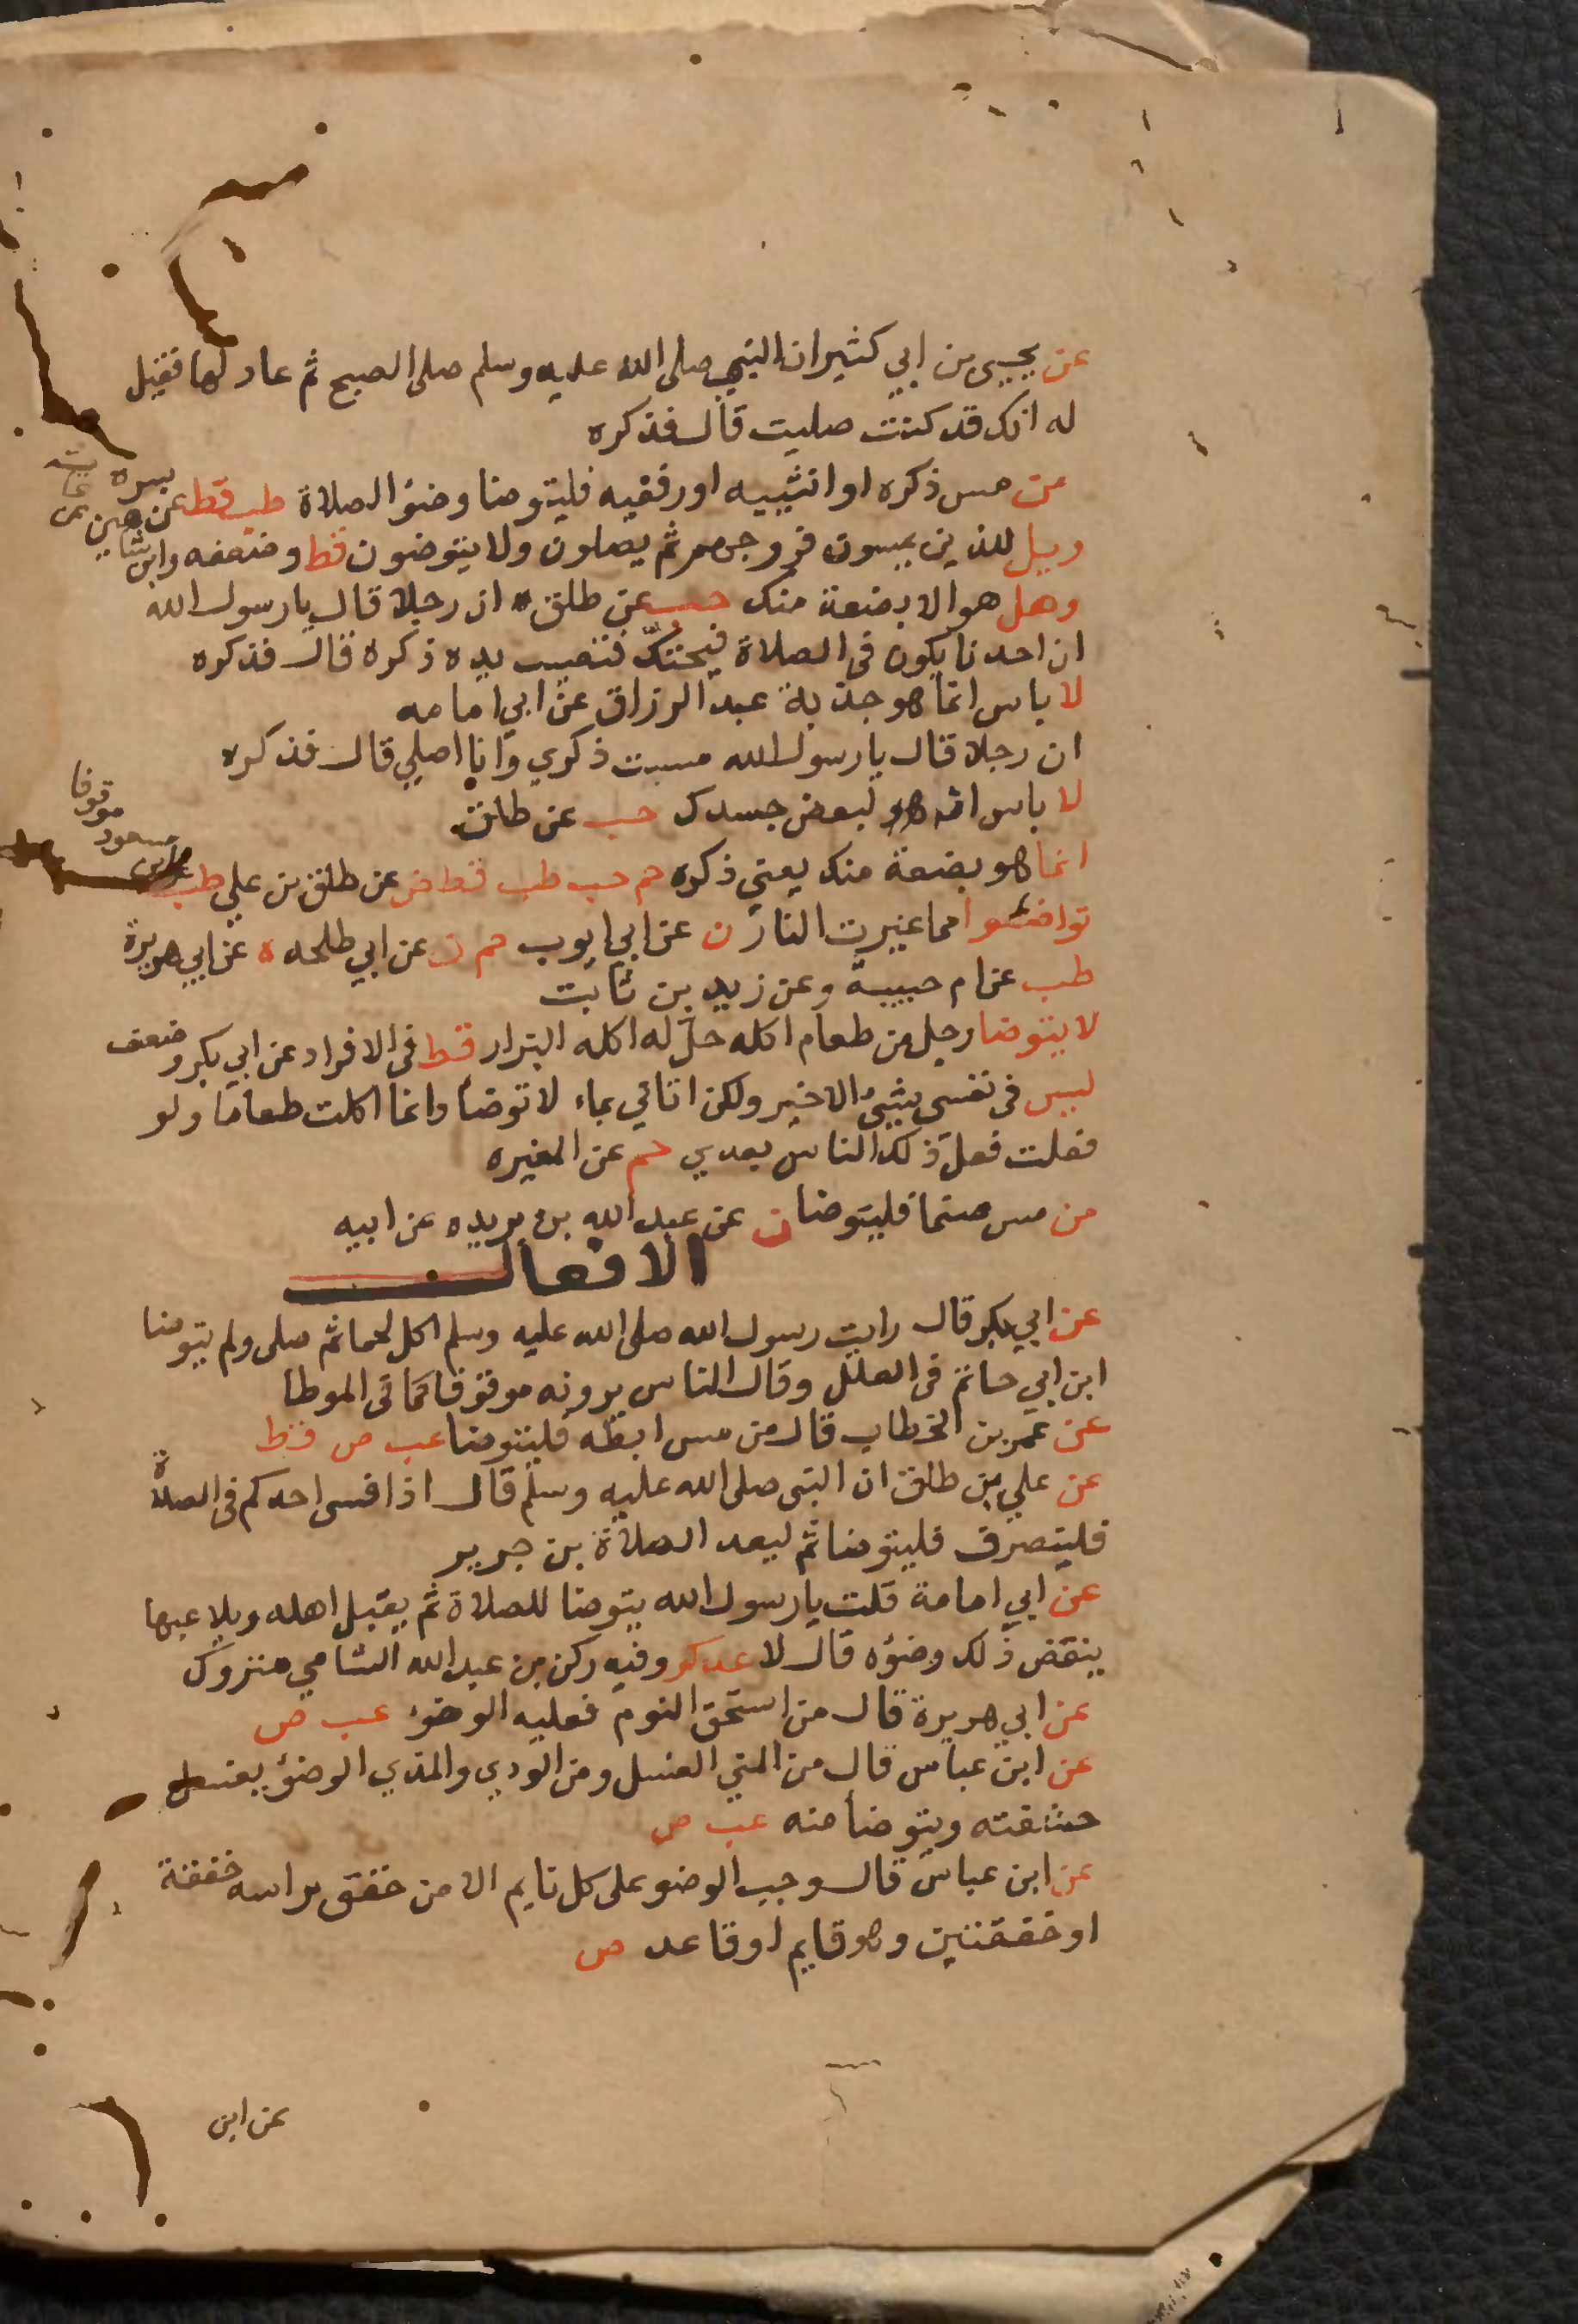 عن يحيى بن ابي كثير ان النبي صلى الله عليه وسلم صلى الصبح ثم عاد لها فقيل
له انك قد كنت صليت قال فذكره
من مس ذكره او انثييه او رفغيه فليتوضا وضؤ الصلاة طب قط عن بسرة
ويل للذين يمسون فروجهم ثم يصلون ولا يتوضون قط وضعفه وابن شاهين عن عايشة
وهل هو الا بضعة منك حب عن طلق ان رجلا قال يا رسول الله
ان احدنا يكون في الصلاة فيحتك فتصيب يده ذكره قال فذكره
لا باس انما هو جذبة عبد الرزاق عن ابي امامه
ان رجلا قال يا رسول الله مسست ذكري وانا اصلي قال فذكره
لا باس انه هو لبعض جسدك حب عن طلق
انما هو بضعة منك يعني ذكره حم حب طب قط ض عن طلق بن علي طب
عن ابن مسعود موقوفا
توضئوا مما غيرت النار ن عن ابي ايوب حم ن عن ابي طلحه ه عن ابي هريرة
طب عن ام حبيبة وعن زيد بن ثابت
لا يتوضا رجل من طعام اكله حل له اكله البزار قط في الافراد عن ابي بكر وضعف
ليس في نفسي شيئ الا خير ولكن اتاني بماء لا توضا وانما اكلت طعاما ولو
فعلت فعل ذلك الناس بعدي حم عن المغيره
من مس صنما فليتوضا ن عن عبد الله بن بريده عن ابيه
الافعال
عن ابي بكر قال رايت رسول الله صلى الله عليه وسلم اكل لحما ثم صلى ولم يتوضا
ابن ابي حاتم في العلل وقال الناس يرونه موقوفا كما في الموطا
عن عمر بن الخطاب قال من مس ابطه فليتوضا عب ص قط
عن علي بن طلق ان النبي صلى الله عليه وسلم قال اذا فسى احدكم في الصلاة
فلينصرف فليتوضا ثم ليعد الصلاة بن جرير
عن ابي امامة قلت يا رسول الله يتوضا للصلاة ثم يقبل اهله ويلاعبها
ينقض ذلك وضوءه قال لا عد كر وفيه ركن بن عبد الله الشامي متروك
عن ابي هريرة قال من استحق النوم فعليه الوضوء عب ص
عن ابن عباس قال من المني الغسل ومن الودي والمذي الوضؤ يغسل
حشفته ويتوضا منه عب ص
عن ابن عباس قال وجب الوضو على كل نايم الا من خفق براسه خفقة
او خفقتين وهو قايم او قاعد ص
عن ابن